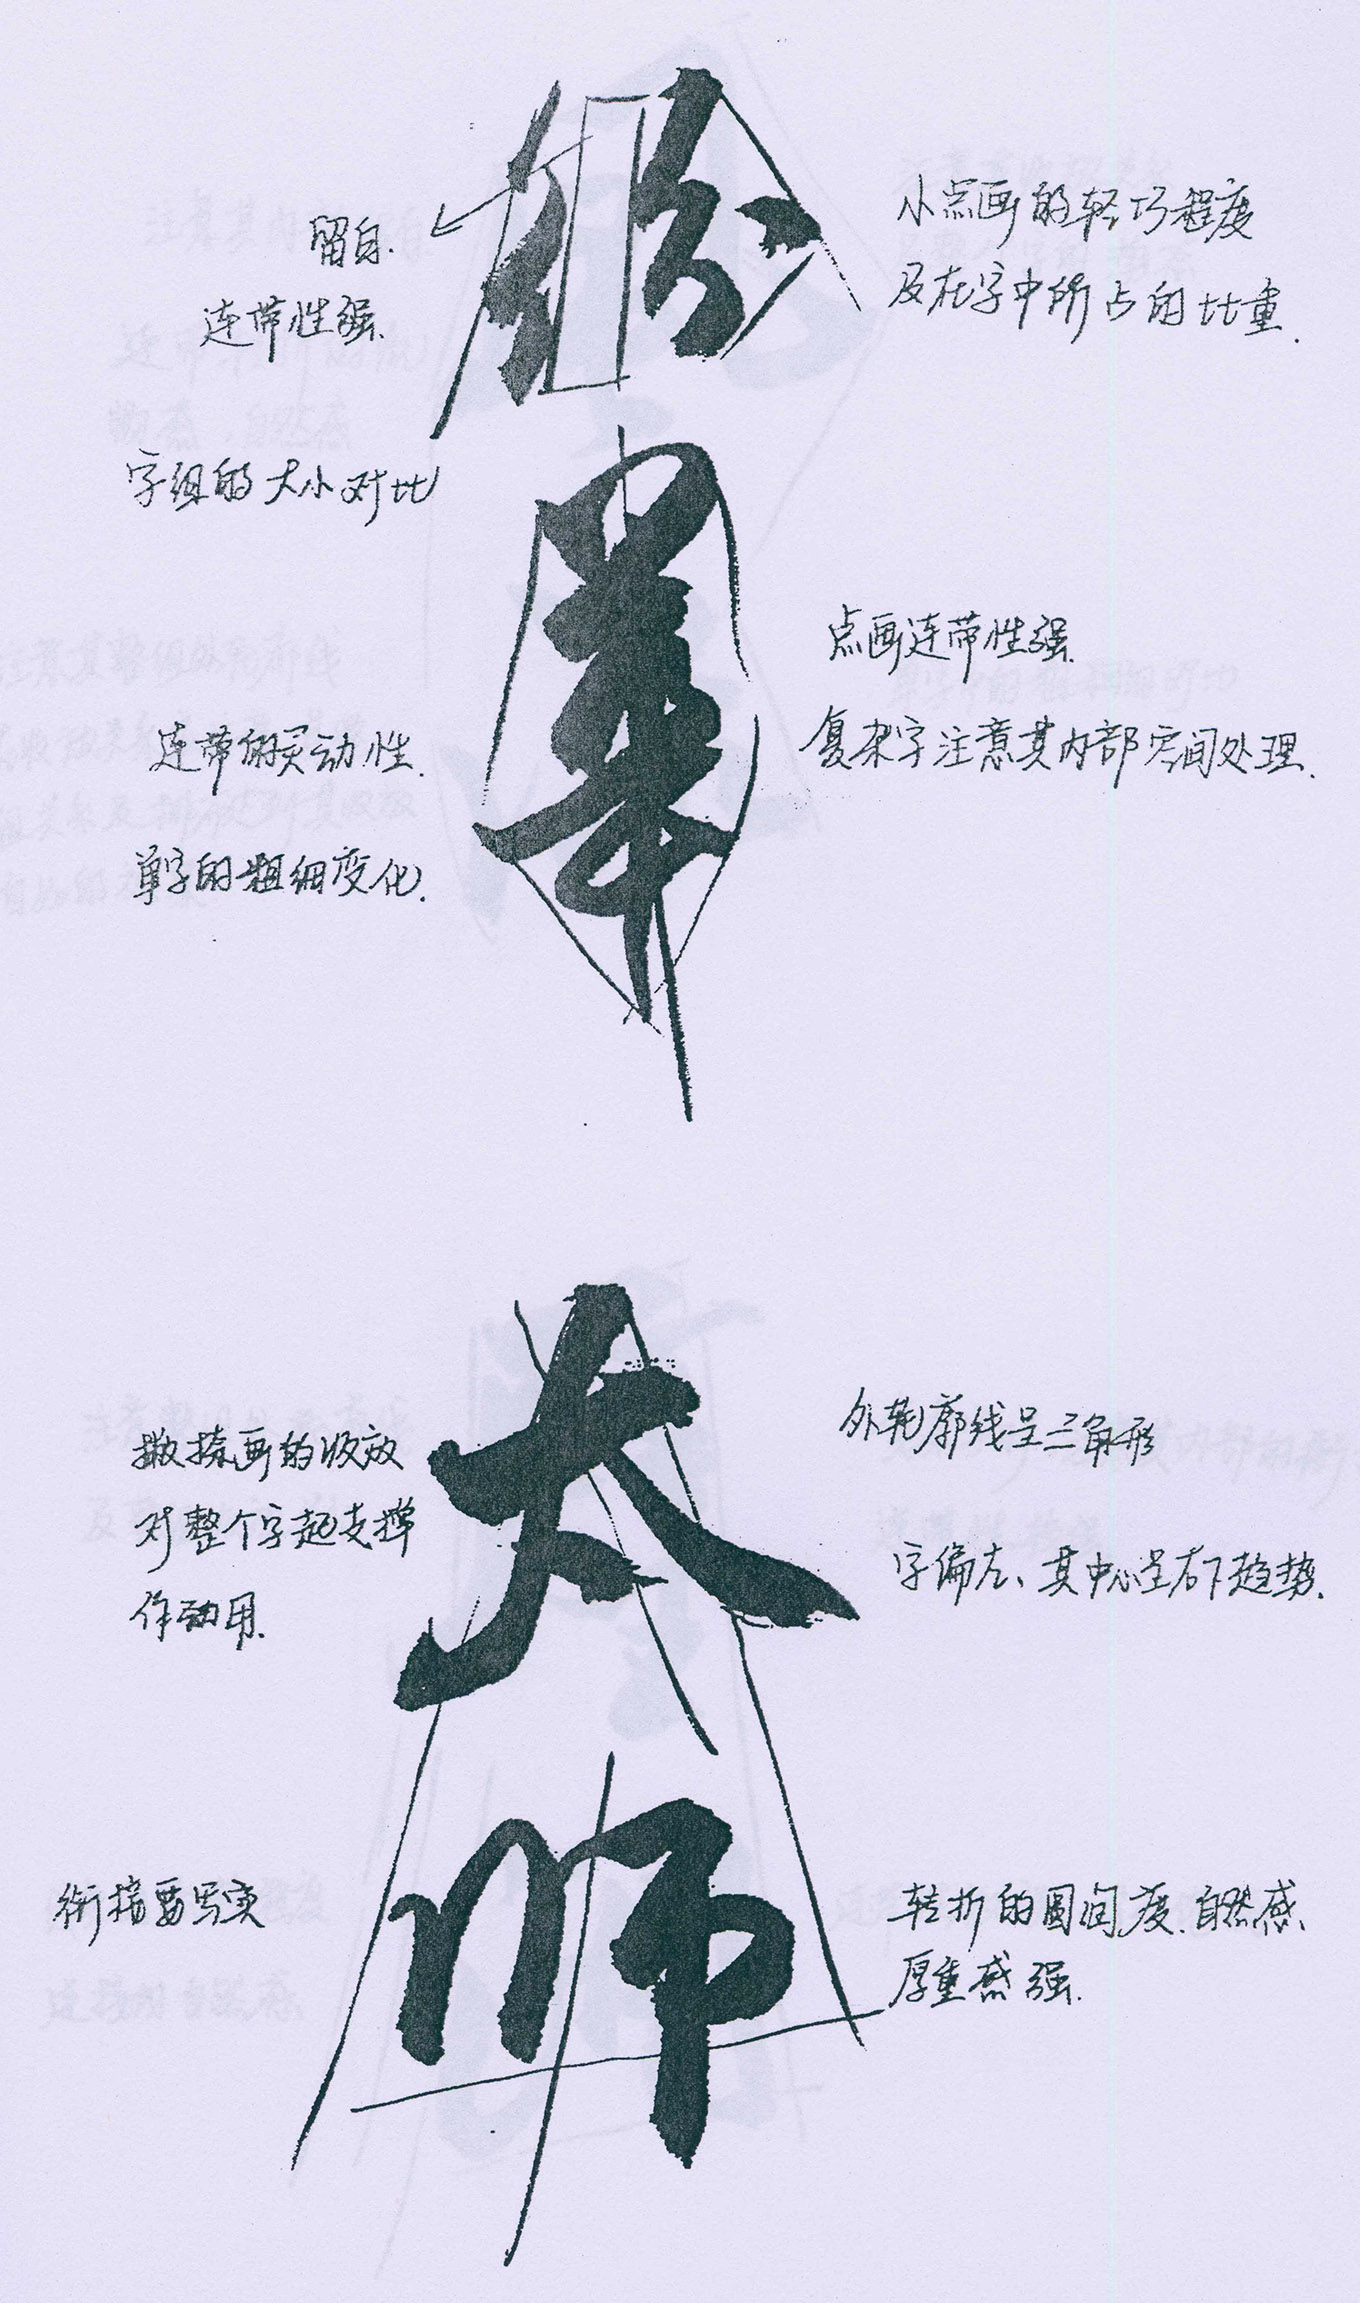 小点画的轻巧程度
及在字中所占的比重.
留白.
连带性强.
字组的大小对比
華
点画连带性强.
复杂字注意其内部空间处理.
连带的灵动性.
单字的粗细变化.
太
外轮廓线呈三角形
字偏左、其中心呈右下趋势.
撇捺画的收放
对整个字起支撑
作动用.
师
衔接要写实
转折的圆润度.自然感
厚重感强.